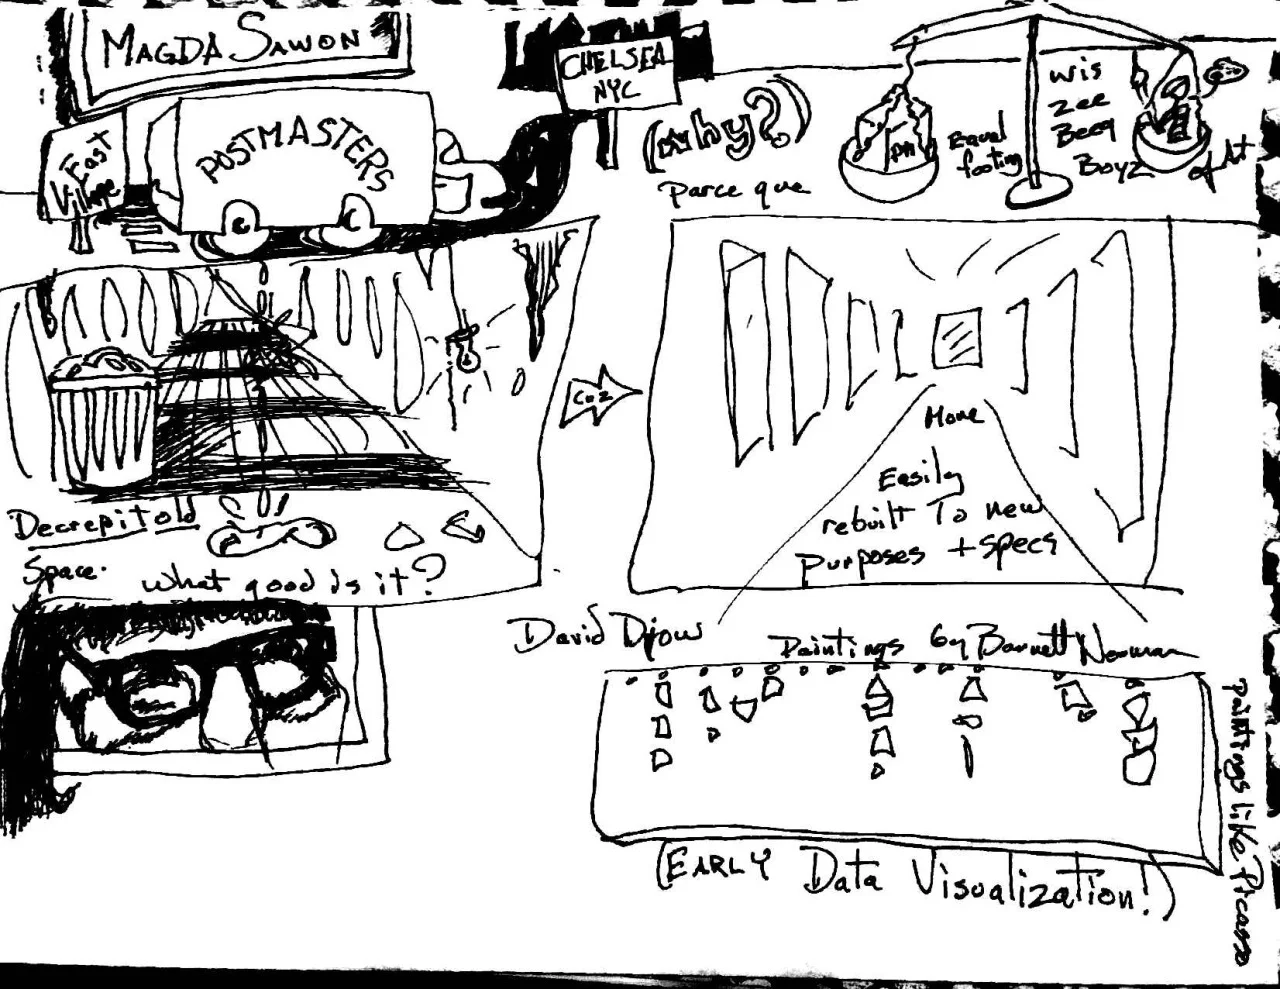 MAGDA SAWON
CHELSEA
NYC
POSTMASTERS
East
Village
(why?)
Parce que
PM
Equal
footing
wis
zee
Beeg
Boyz
of Art
Coz
More
Easily
rebuilt To new
Purposes + specs
Decrepit old
Space.
What good is it?
David Diow
Paintings by Barnett Newman
Paintings like Picasso
(EARLY Data Visualization!)